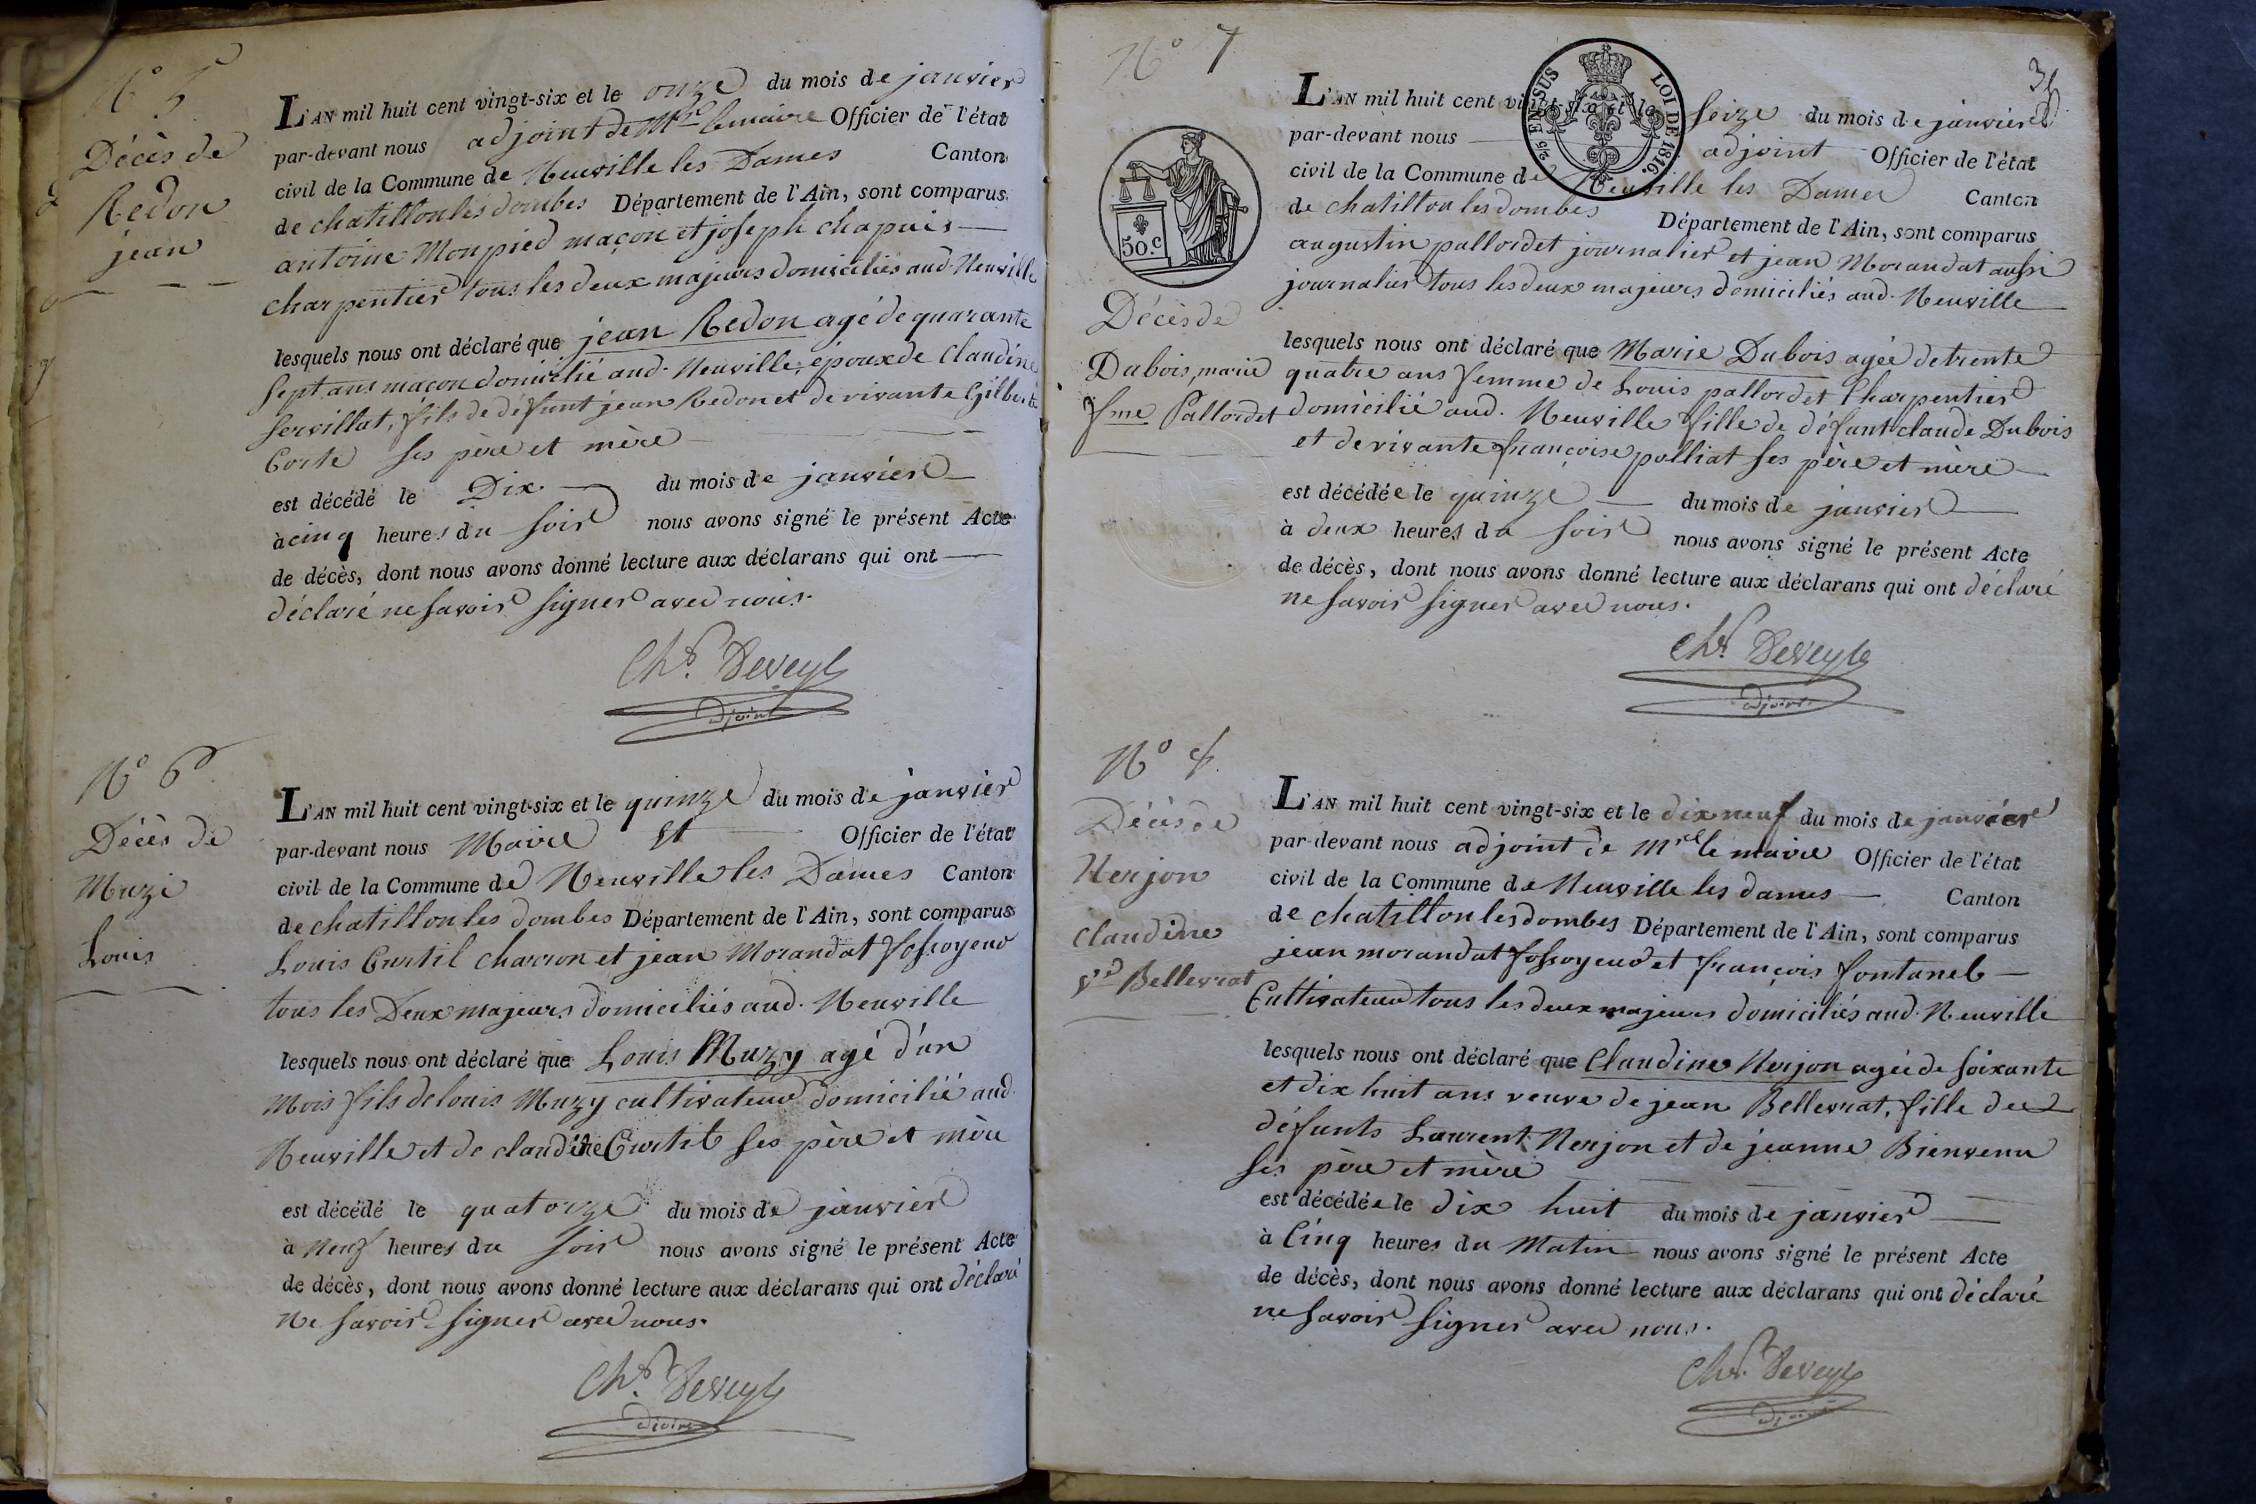 N.° 5
Décès de
Redon
jean
L'AN mil huit cent vingt-six et le onze du mois de janvier
par-devant nous adjoint de Mr. le maire Officier de l'état
civil de la Commune de Neuville les Dames Canton
de chatillon les dombes Département de l'Ain, sont comparus
antoine Monpied maçon et joseph chapuis
charpentier tous les deux majeurs domiciliés aud. Neuville
lesquels nous ont déclaré que jean Redon agé de quarante
sept ans maçon domicilié aud. Neuville, époux de Claudine
servillat, fils de défunt jean Redon et de vivante Gilberte
Corte ses père et mère
est décédé le Dix du mois de janvier
à cinq heures du soir nous avons signé le présent Acte
de décès, dont nous avons donné lecture aux déclarans qui ont
déclaré ne savoir signer avec nous.
Chr. Deveyle
adjoint
N.° 6
Décès de
Muzi
Louis
L'AN mil huit cent vingt-six et le quinze du mois de janvier
par-devant nous Maire et Officier de l'état
civil de la Commune de Neuville les Dames Canton
de chatillon les dombes Département de l'Ain, sont comparus
Louis Curtil charron et jean Morandat fossoyeur
tous les Deux majeurs domiciliés aud. Neuville
lesquels nous ont déclaré que Louis Muzy agé d'un
Mois fils de louis Muzy cultivateur domicilié aud.
Neuville et de claudine Curtil ses père et mère
est décédé le quatorze du mois de janvier
à Neuf heures du soir nous avons signé le présent Acte
de décès, dont nous avons donné lecture aux déclarans qui ont déclaré
Ne savoir signer avec nous.
Chr. Deveyle
adjoint
34
N.° 7
EN SUS
LOI DE 1816.
50.c
Décès de
Dubois, marie
fme Pallordet
L'AN mil huit cent vingt-six et le seize du mois de janvier
par-devant nous adjoint Officier de l'état
civil de la Commune de Neuville les Dames Canton
de chatillon les dombes Département de l'Ain, sont comparus
augustin pallordet journalier et jean Morandat aussi
journalier tous les deux majeurs domiciliés aud. Neuville
lesquels nous ont déclaré que Marie Dubois agée de trente
quatre ans femme de Louis pallordet Charpentier
domicilié aud. Neuville fille de défunt claude Dubois
et de vivante françoise polliat ses père et mère
est décédée le quinze du mois de janvier
à deux heures du soir nous avons signé le présent Acte
de décès, dont nous avons donné lecture aux déclarans qui ont déclaré
ne savoir signer avec nous.
Chr. Deveyle
adjoint
N.° 8.
Décès de
Nerjon
claudine
ve Bellevrat
L'AN mil huit cent vingt-six et le dix neuf du mois de janvier
par-devant nous adjoint de Mr le maire Officier de l'état
civil de la Commune de Neuville les dames Canton
de chatillon les dombes Département de l'Ain, sont comparus
jean morandat fossoyeur et françois fontanel
Cultivateur tous les deux majeurs domiciliés aud. Neuville
lesquels nous ont déclaré que Claudine Nerjon agée de soixante
et dix huit ans veuve de jean Bellevrat, fille de
défunts Laurent Nerjon et de jeanne Bienvenu
ses père et mère
est décédée le dix huit du mois de janvier
à Cinq heures du Matin nous avons signé le présent Acte
de décès, dont nous avons donné lecture aux déclarans qui ont déclaré
ne savoir signer avec nous.
Chr. Deveyle
adjoint